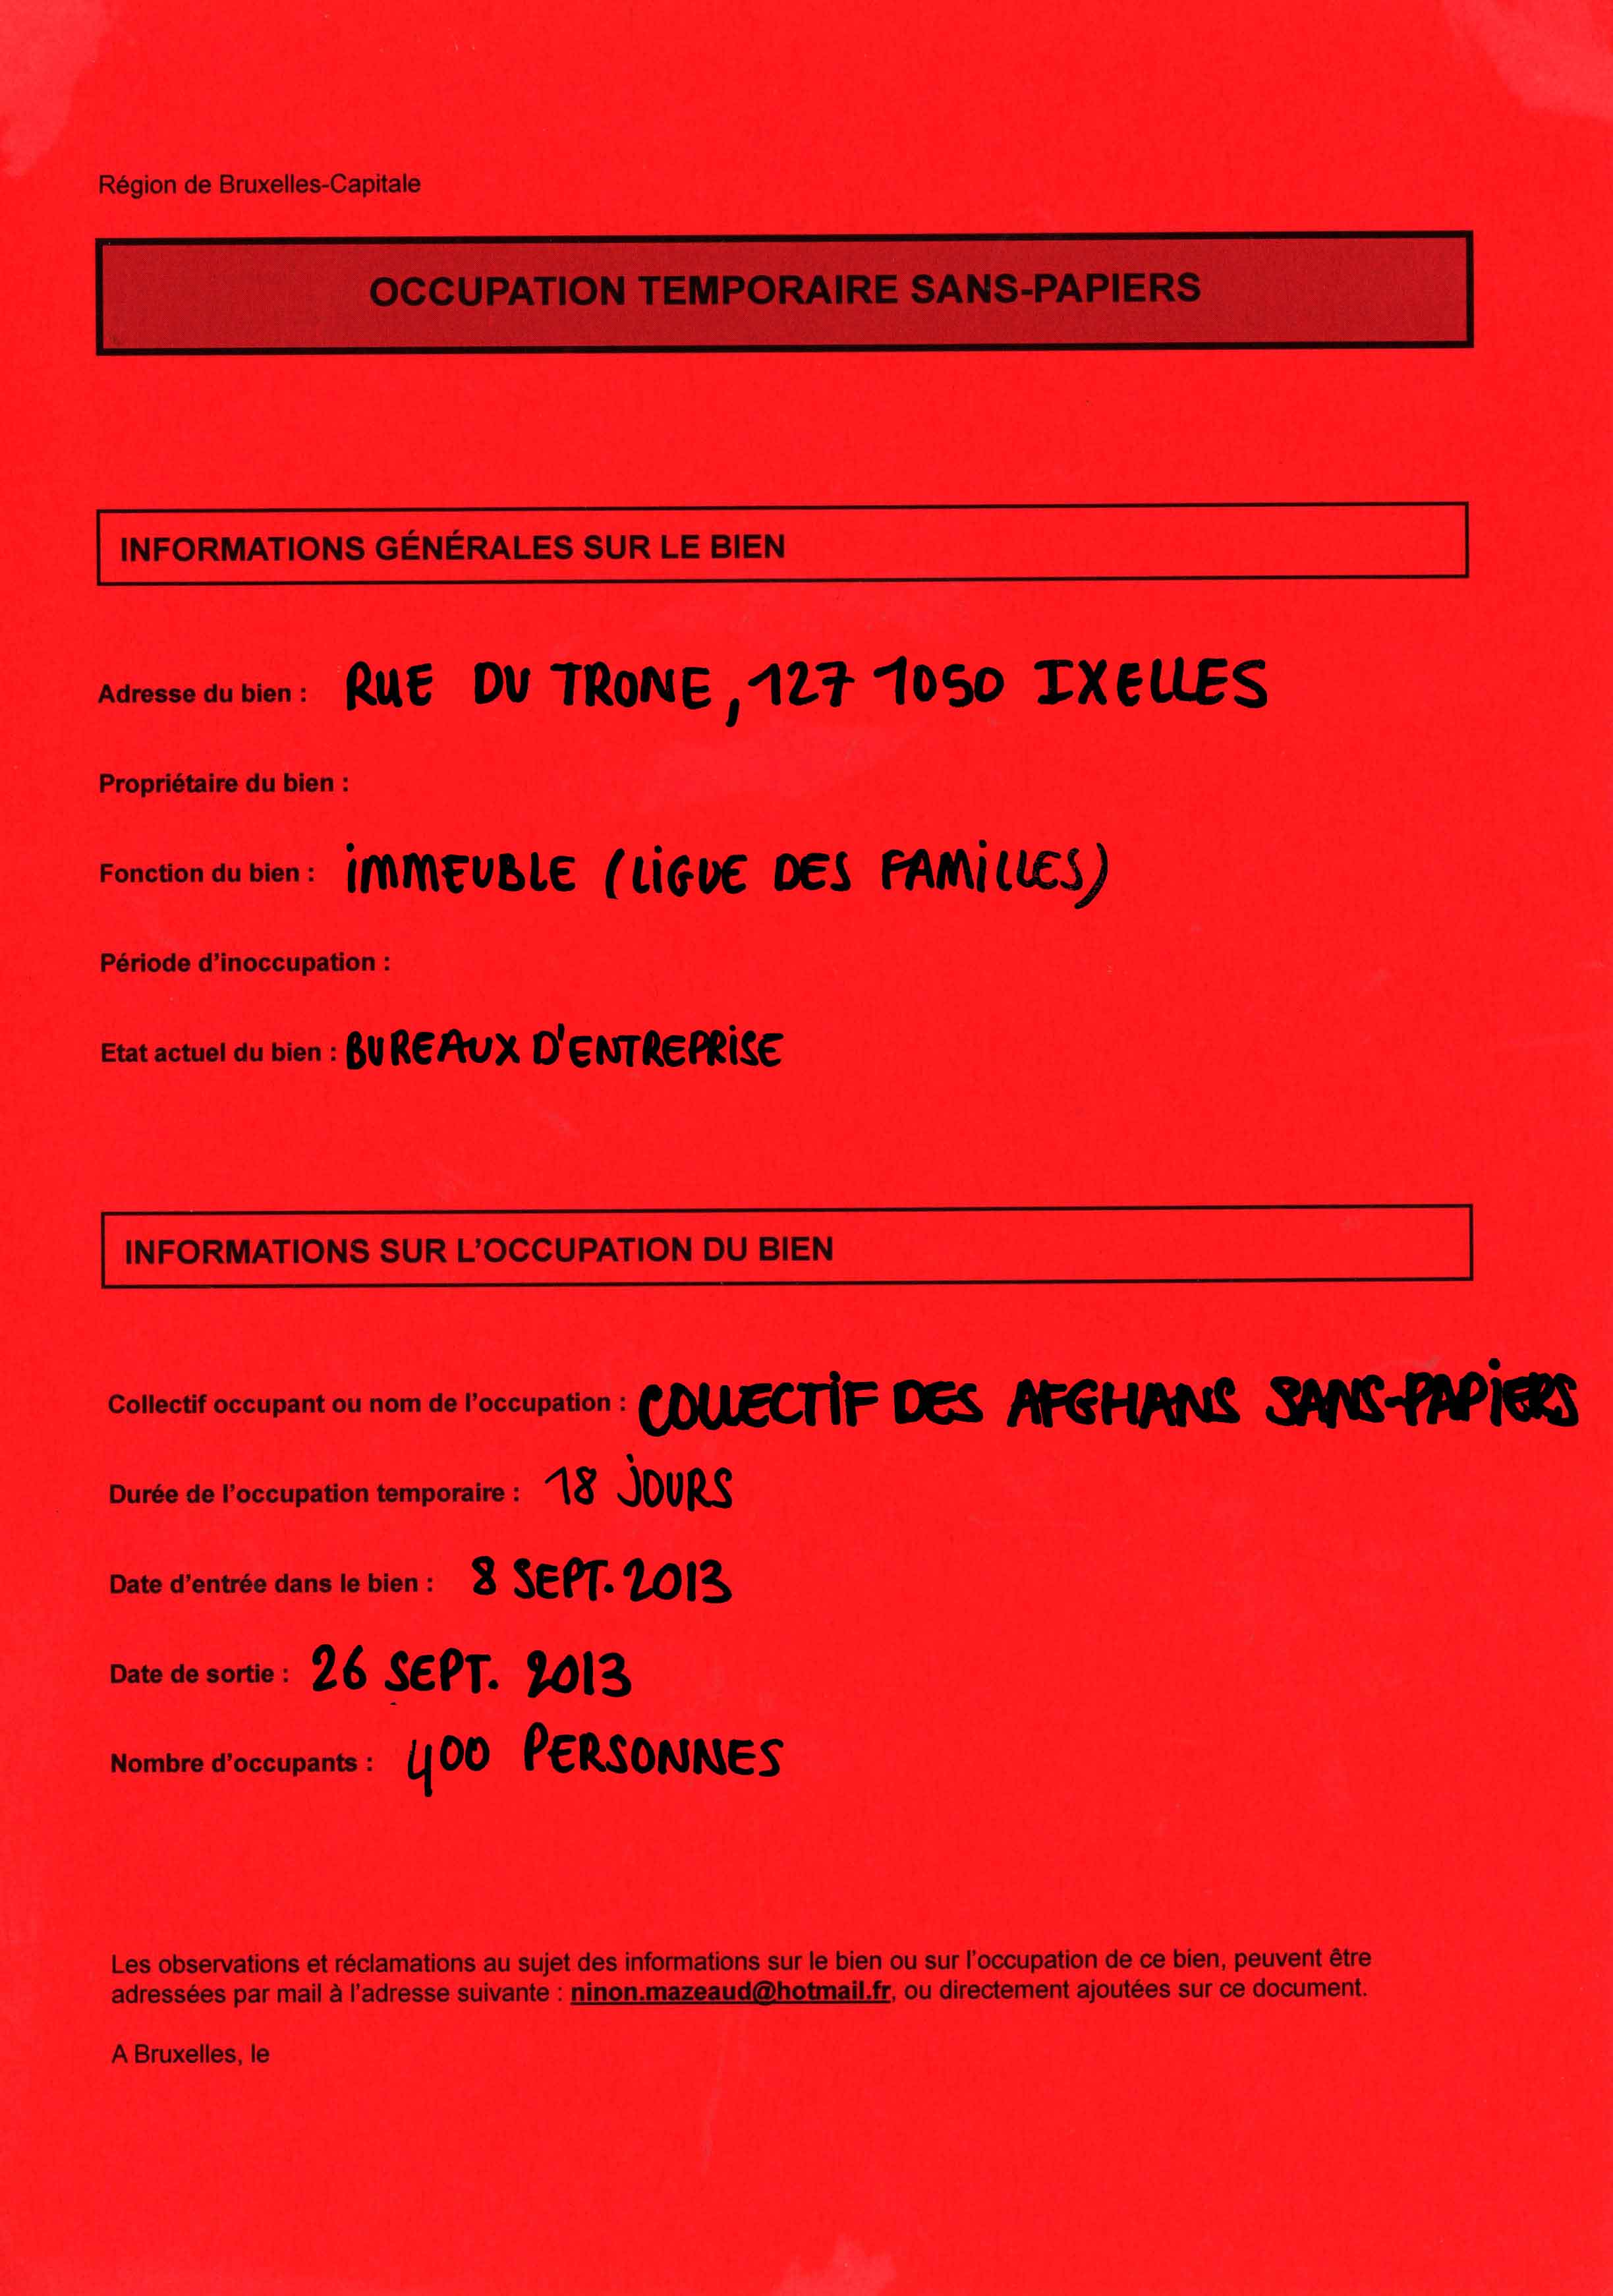 Région de Bruxelles-Capitale
OCCUPATION TEMPORAIRE SANS-PAPIERS
INFORMATIONS GÉNÉRALES SUR LE BIEN
Adresse du bien : RUE DU TRONE, 127 1050 IXELLES
Propriétaire du bien :
Fonction du bien : IMMEUBLE (LIGUE DES FAMILLES)
Période d'inoccupation :
Etat actuel du bien : BUREAUX D'ENTREPRISE
INFORMATIONS SUR L'OCCUPATION DU BIEN
Collectif occupant ou nom de l'occupation : COLLECTIF DES AFGHANS SANS-PAPIERS
Durée de l'occupation temporaire : 18 JOURS
Date d'entrée dans le bien : 8 SEPT. 2013
Date de sortie : 26 SEPT. 2013
Nombre d'occupants : 400 PERSONNES
Les observations et réclamations au sujet des informations sur le bien ou sur l'occupation de ce bien, peuvent être
adressées par mail à l'adresse suivante : ninon.mazeaud@hotmail.fr, ou directement ajoutées sur ce document.
A Bruxelles, le